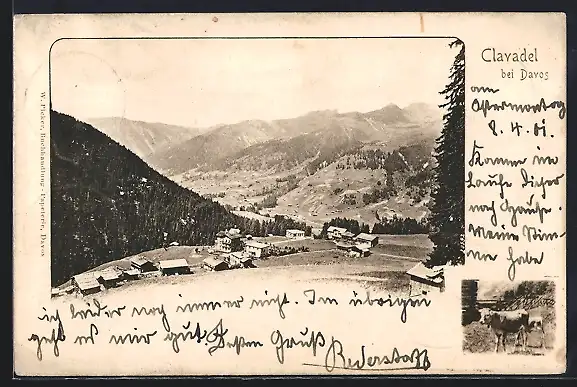 Clavadel
bei Davos
W. Picker, Buchhandlung - Papeterie, Davos
am
Ostermontag
8. 4. 01.
Komme im
Laufe dieser
nach Hause.
Meine Stim-
me habe
ich leider noch immer nicht. Im übrigen
geht es mir gut. Besten Gruß